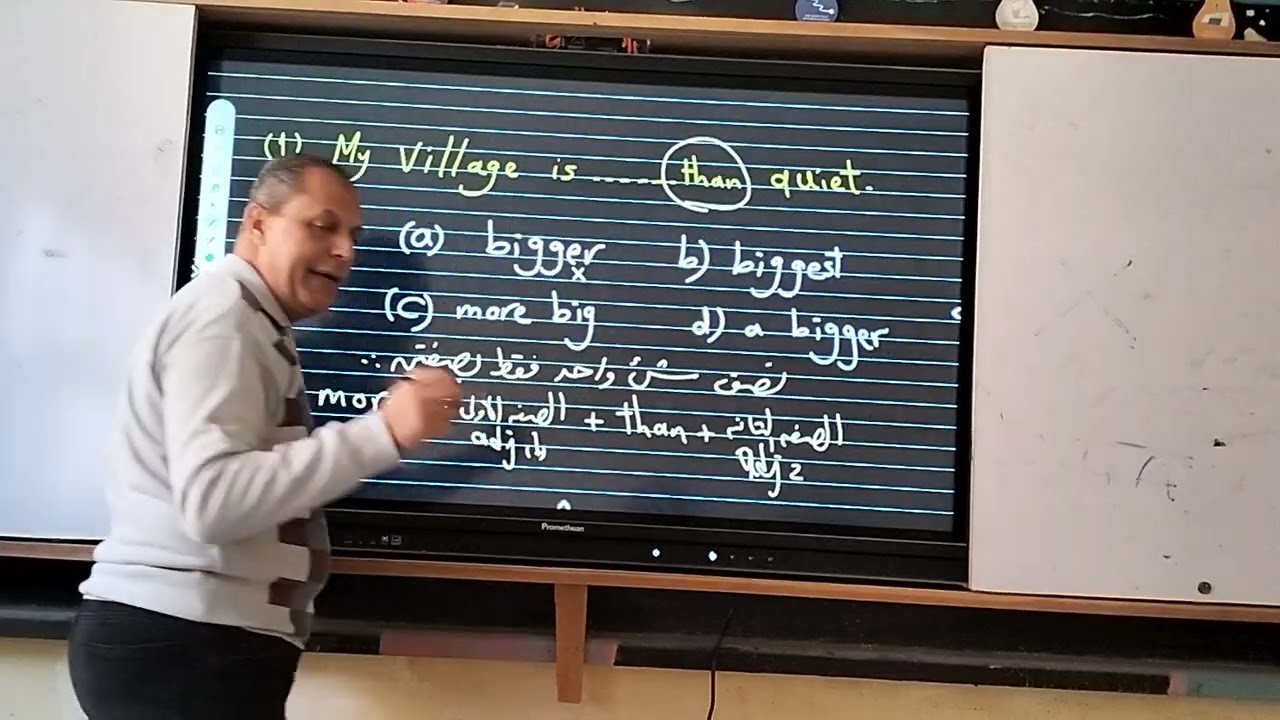 (1) My Village is ------ than quiet.
(a) bigger b) biggest
x
(c) more big d) a bigger
∴ نصف شئ واحد فقط بصفتين
mor الصفه الاولى + than + الصفه الثانيه
adj 1 adj 2
Promethean